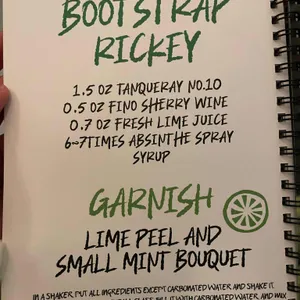 BOOTSTRAP
RICKEY
1.5 OZ TANQUERAY NO.10
0.5 OZ FINO SHERRY WINE
0.7 OZ FRESH LIME JUICE
6~7TIMES ABSINTHE SPRAY
SYRUP
GARNISH
LIME PEEL AND
SMALL MINT BOUQUET
IN A SHAKER, PUT ALL INGREDIENTS EXCEPT CARBONATED WATER AND SHAKE IT.
WITH CARBONATED WATER, AND MIX